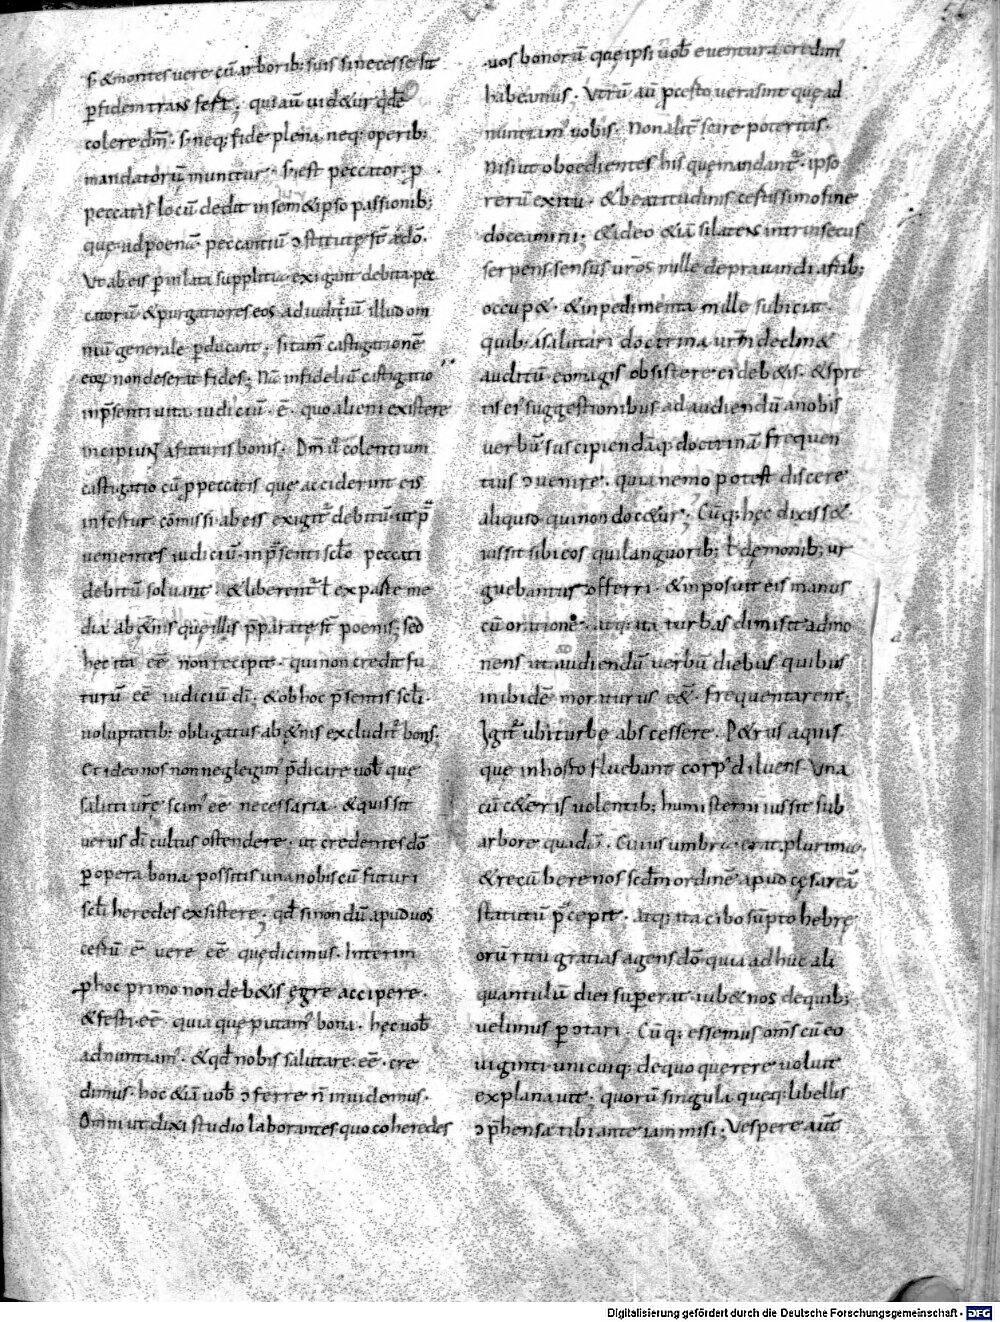 s; & montes uere cū arborib; suis si necesse sit
p̄ fidem trans fert; qui aū uid&ur qd̄e
colere dm̄; s; neq; fide plena neq; operib;
mandatorū munitur. s; est peccator. p
peccatis locū dedit in sem&ipso passionib;
que ad poenā peccantiū ɔstitute st̄ a dō.
Vt ab eis p̄ inlata supplicia exigant debita pec
catorū & purgatiores eos ad iudiciū illud om
niū generale p̄ducant; si tam̄ castigationē
eoꝝ non deserat fides; Nā infideliū castigatio
in p̄senti uita iudiciū. ē. quo alieni existere
incipiunt a futuris bonis. Dm̄ u colentium
castigatio cū p peccatis que acciderint eis
infertur cōmissi ab eis exigit debitū. ut p̄
uenientes iudiciū in p̄senti sclō peccati
debitū soluant. & liberent̄ ł ex parte me
dia ab &nis que illis p̄parate st̄ poenis, sed
hec ita eē non recipit. qui non credit fu
turū eē iudiciū dī; & ob hoc p̄sentis scli.
uoluptatib; obligatus ab &nis excludit̄ bonis.
Et ideo nos non neglegim̄ p̄dicare uob̄ que
saluti ur̄e scim̄ eē necessaria. & quis sit
uerus dī cultus ostendere. ut credentes dō
p̄ opera bona possitis una nobiscū futuri
scli heredes exsistere; qd̄ si nondū apud uos
certū ē uere eē que dicimus. Interim
p̄ hoc primo non deb&is egre accipere.
& festi. eē quia que putam̄ bona. hec uob̄
adnuntiam̄. & qd̄ nobis salutare. eē. cre
dimus. hoc &iā uob̄ ɔferre n̄ inuidemus.
Omni ut dixi studio laborantes quo coheredes
uos bonorū que ipsi uob̄ euentura credim̄
habeamus. Vtrū aū p̄certo uera sint que ad
nuntiam̄ uobis. Non alit̄ scire poteritis.
Nisi ut oboedientes his que mandant̄. ipso
rerū exitu. & beatitudinis certissimo fine
doceamini; & ideo &iā si latens intrinsecus
serpens sensus uros mille deprauandi artib;
occup&. & inpedimenta mille subiciat.
quib; a salutari doctrina urm̄ declin&
auditū. eo magis obsistere ei deb&is. & spre
tis ei suggestionibus ad audiendū a nobis
uerbū suscipiendāq; doctrinā frequen
tius ɔuenire. quia nemo potest discere
aliquid. qui non doc&ur; Cūq; hec dixiss&
iussit sibi eos qui languorib; ł demonib; ur
guebantur offerri. & inposuit eis manus
cū oratione. atq; ita turbas dimisit admo
nens ut ad audiendū uerbū diebus quibus
inibidē moraturus e&. frequentarent;
Igit̄ ubi turbe abscessere. P&rus aquis
que in horto fluebant corp' diluens. Vna
cū c&eris uolentib; humi sterni iussit sub
arbore quadā. Cuius umbra erat plurima;
& recūbere nos scdm̄ ordinē apud cesareā
statutū p̄cepit. Atq; ita cibo sūpto hebre
orū ritu gratias agens dō. quia adhuc ali
quantulū diei supererat. iub& nos de quib;
uelimus p̄ɔtari. Cūq; essemus oms̄ cū eo
uiginti unicuiq; de quo querere uoluit
explanauit; quorū singula queq; libellis
ɔp̄hensa tibi ante iam misi; Vespere aut̄
Digitalisierung gefördert durch die Deutsche Forschungsgemeinschaft - DFG